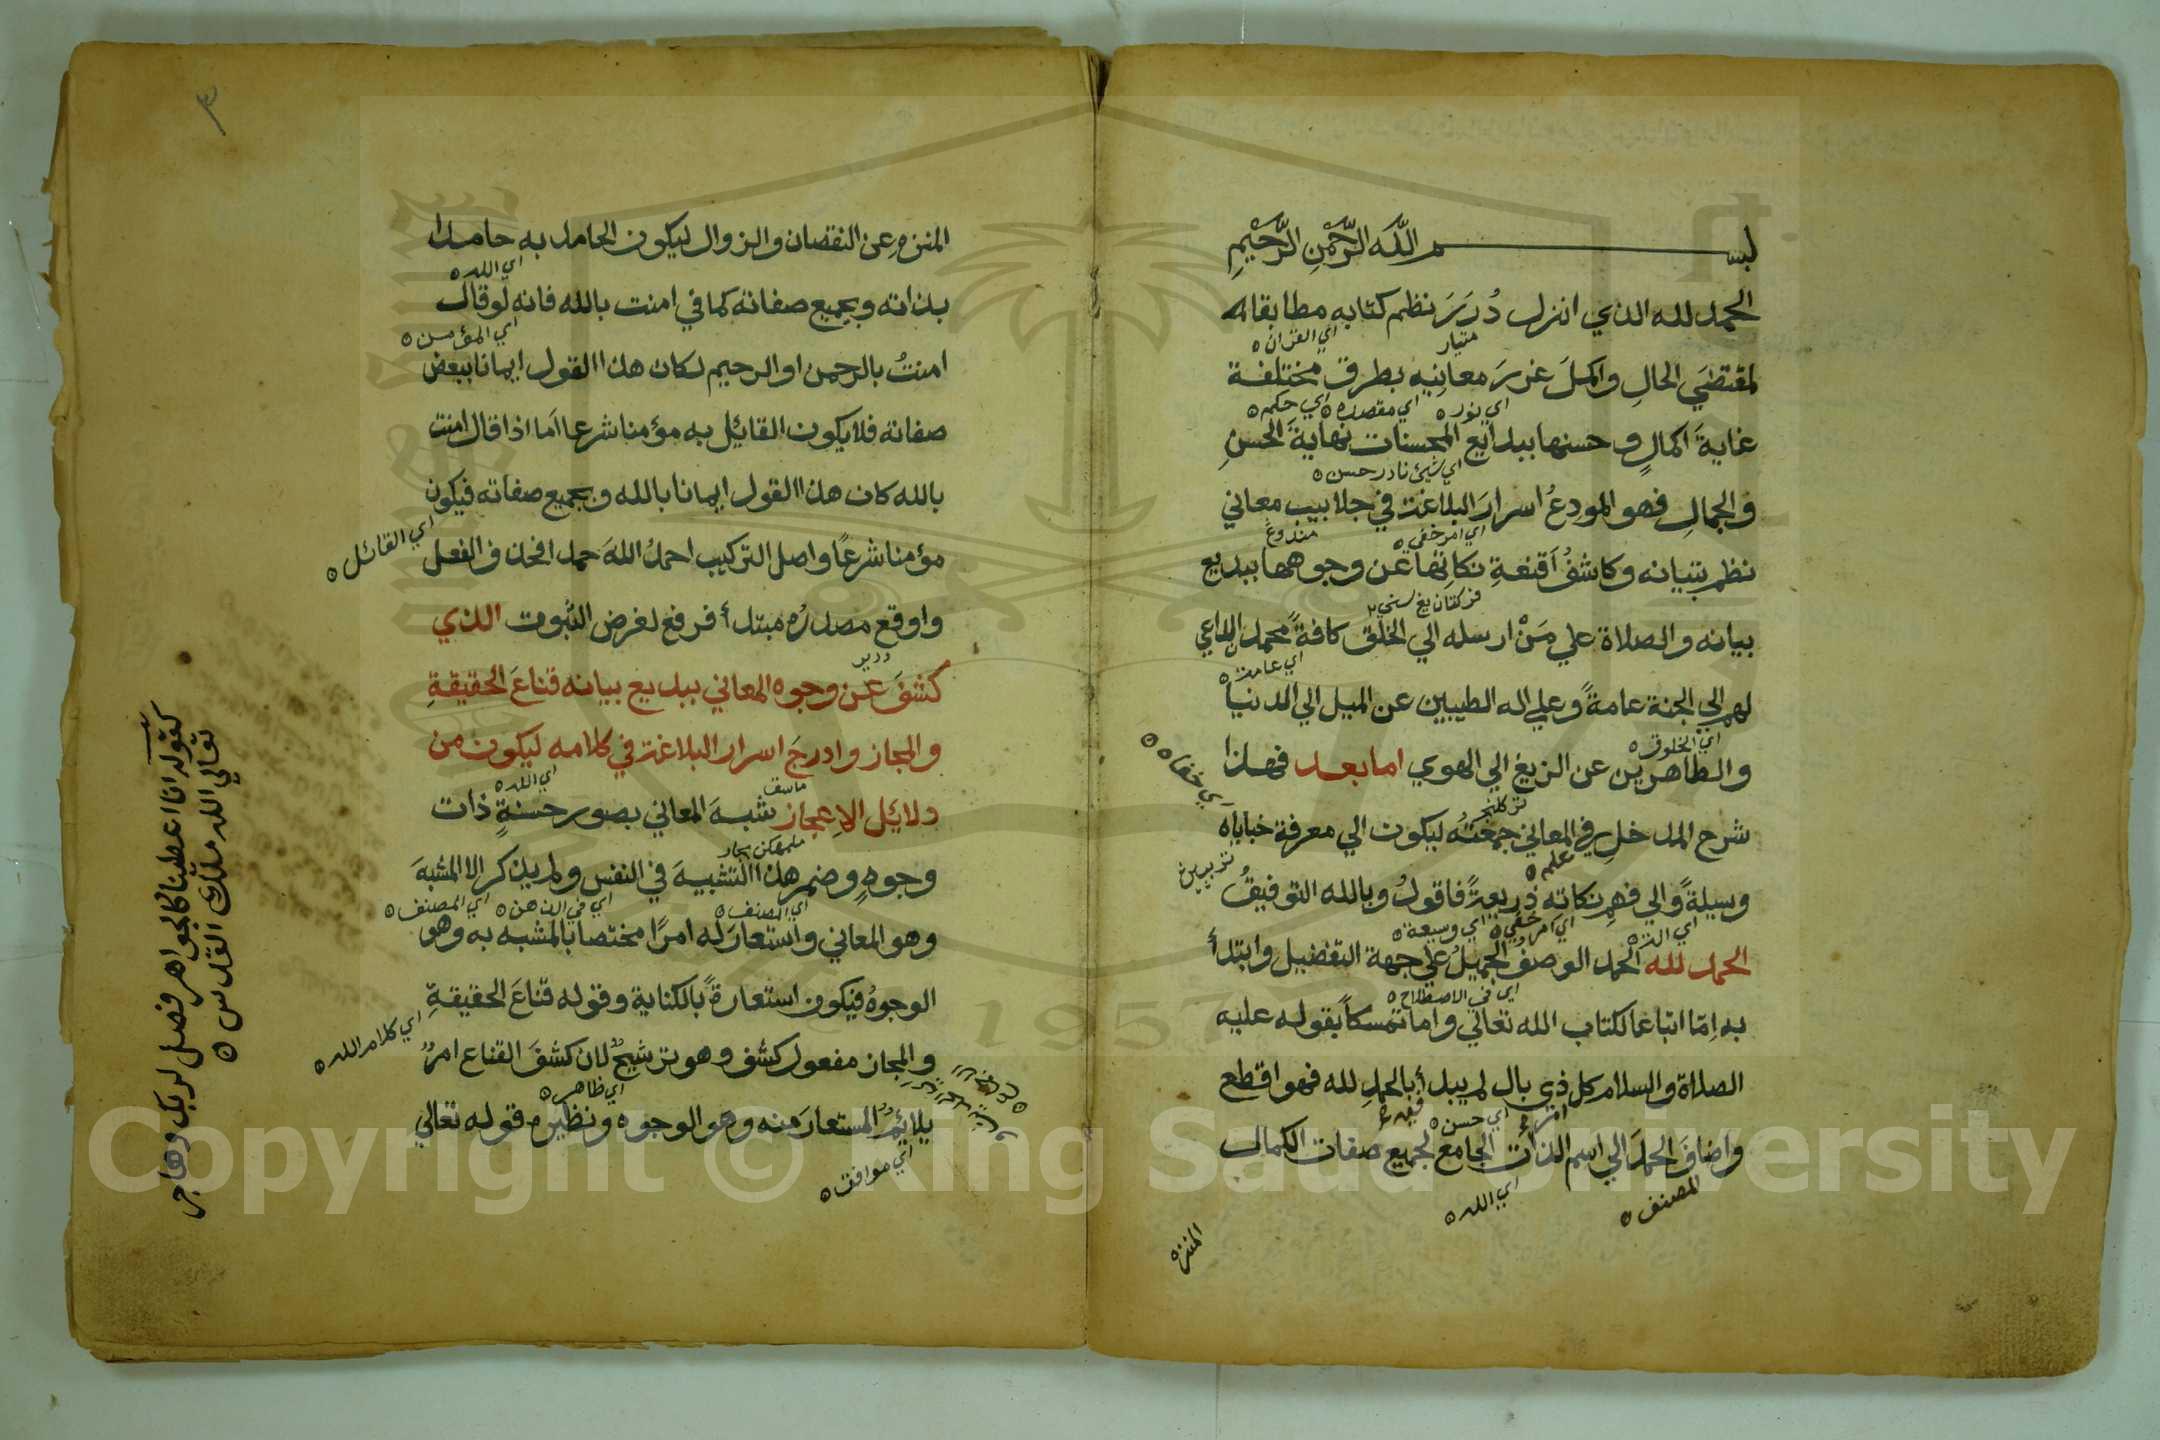 بسم الله الرَّحْمٰنِ الرَّحِيْمِ
الحمد لله الذي انزل دُرَرَ نظم كتابه مطابقا له
اي القران
لمقتضَي الحالِ واكملَ غررَ معانِيه بطرق مختلفة
اي نور اي مقصده اي حكم
غايةَ اكمالٍ و حسنها ببدايع المحسنات نهايةَ الحسنِ
اي شيئ نادر حسن
والجمالِ فهو المودعُ اسرارَ البلاغة في جلابيب معاني
اي امر خفي
نظم بتبيانه وكاشفُ اَقنعةِ نكاتها عن وجوهها ببديع
بيانه والصلاة علي مَنْ ارسله الي الخلق كافةً محمد الداعي
اي عامة
لهم الي الجنة عامةً وعلي اله الطيبين عن الميل الي الدنيا
اي الخلوق
والطاهرين عن الزيغ الي الهوي اما بعد فهذا
شرح المدخلِ في المعاني جمعْتُه ليكون الي معرفة خباياه
علم
وسيلةً والي فهم نكاته ذريعةً فاقولُ وبالله التوفيقُ
اي امر خفي اي وسيعة
الحمد لله الحمد الوصفُ الجميلُ علي جهة التفضيل وابتدأ
اي في الاصطلاح
به اِمّا اتباعا لكتاب الله تعالي واما تمسكاً بقوله عليه
الصلاة والسلام كل ذي بال لم يبدأ بالحمدِ لله فهو اقطع
اي حسن
واضافَ الحمدَ الي اسم الذات الجامع لجميع صفات الكمال
المصنف اي الله
المنزه
المنزه عن النقصان والزوال ليكون الحامد به حامدا
اي الله
بذاته وبجميع صفاته كما في امنت بالله فانه لو قال
اي المؤمن
امنتُ بالرحمن او الرحيم لكان هذا القول ايمانا ببعض
صفاته فلا يكون القايُل به مؤمنا شرعا اَما اذا قال امنت
بالله كان هذا القول ايمانا بالله وبجميع صفاته فيكون
اي القائل
مؤمنا شرعًا واصل التركيب احمدُ اللهَ حمدا فحذف الفعل
واوقع مصدرُه مبتدأ فرفع لغرض الثُبوت الذي
كشفَ عن وجوه المعاني ببديع بيانه قناعَ الحقيقةِ
والمجاز وادرجَ اسرار البلاغة في كلامه ليكون من
اي الله
دلايُل الاِعجاز شبهَ المعاني بصور حسنةٍ ذات
وجوهٍ وضم هذا التشبيهَ في النفس ولم يذكر الا المشبهَ
اي المصنف اي في الذهن اي المصنف
وهو المعاني واستعارَ له امرًا مختصا بالمشبه به وهو
الوجوهُ فيكون استعارةً بالكناية وقوله قناعَ الحقيقةِ
اي كلام الله
والمجاز مفعول كشف وهو ترشيحٌ لان كشفَ القناع امرٌ
اي ظاهر
يلايُمُ المستعارَ منه وهو الوجوه ونظيره قوله تعالي
اي موافق
كقوله انا اعطيناك الجواهر فصل لربك وهاجر
تعالي الله ملك القدس
Copyright © King Saud University
1957